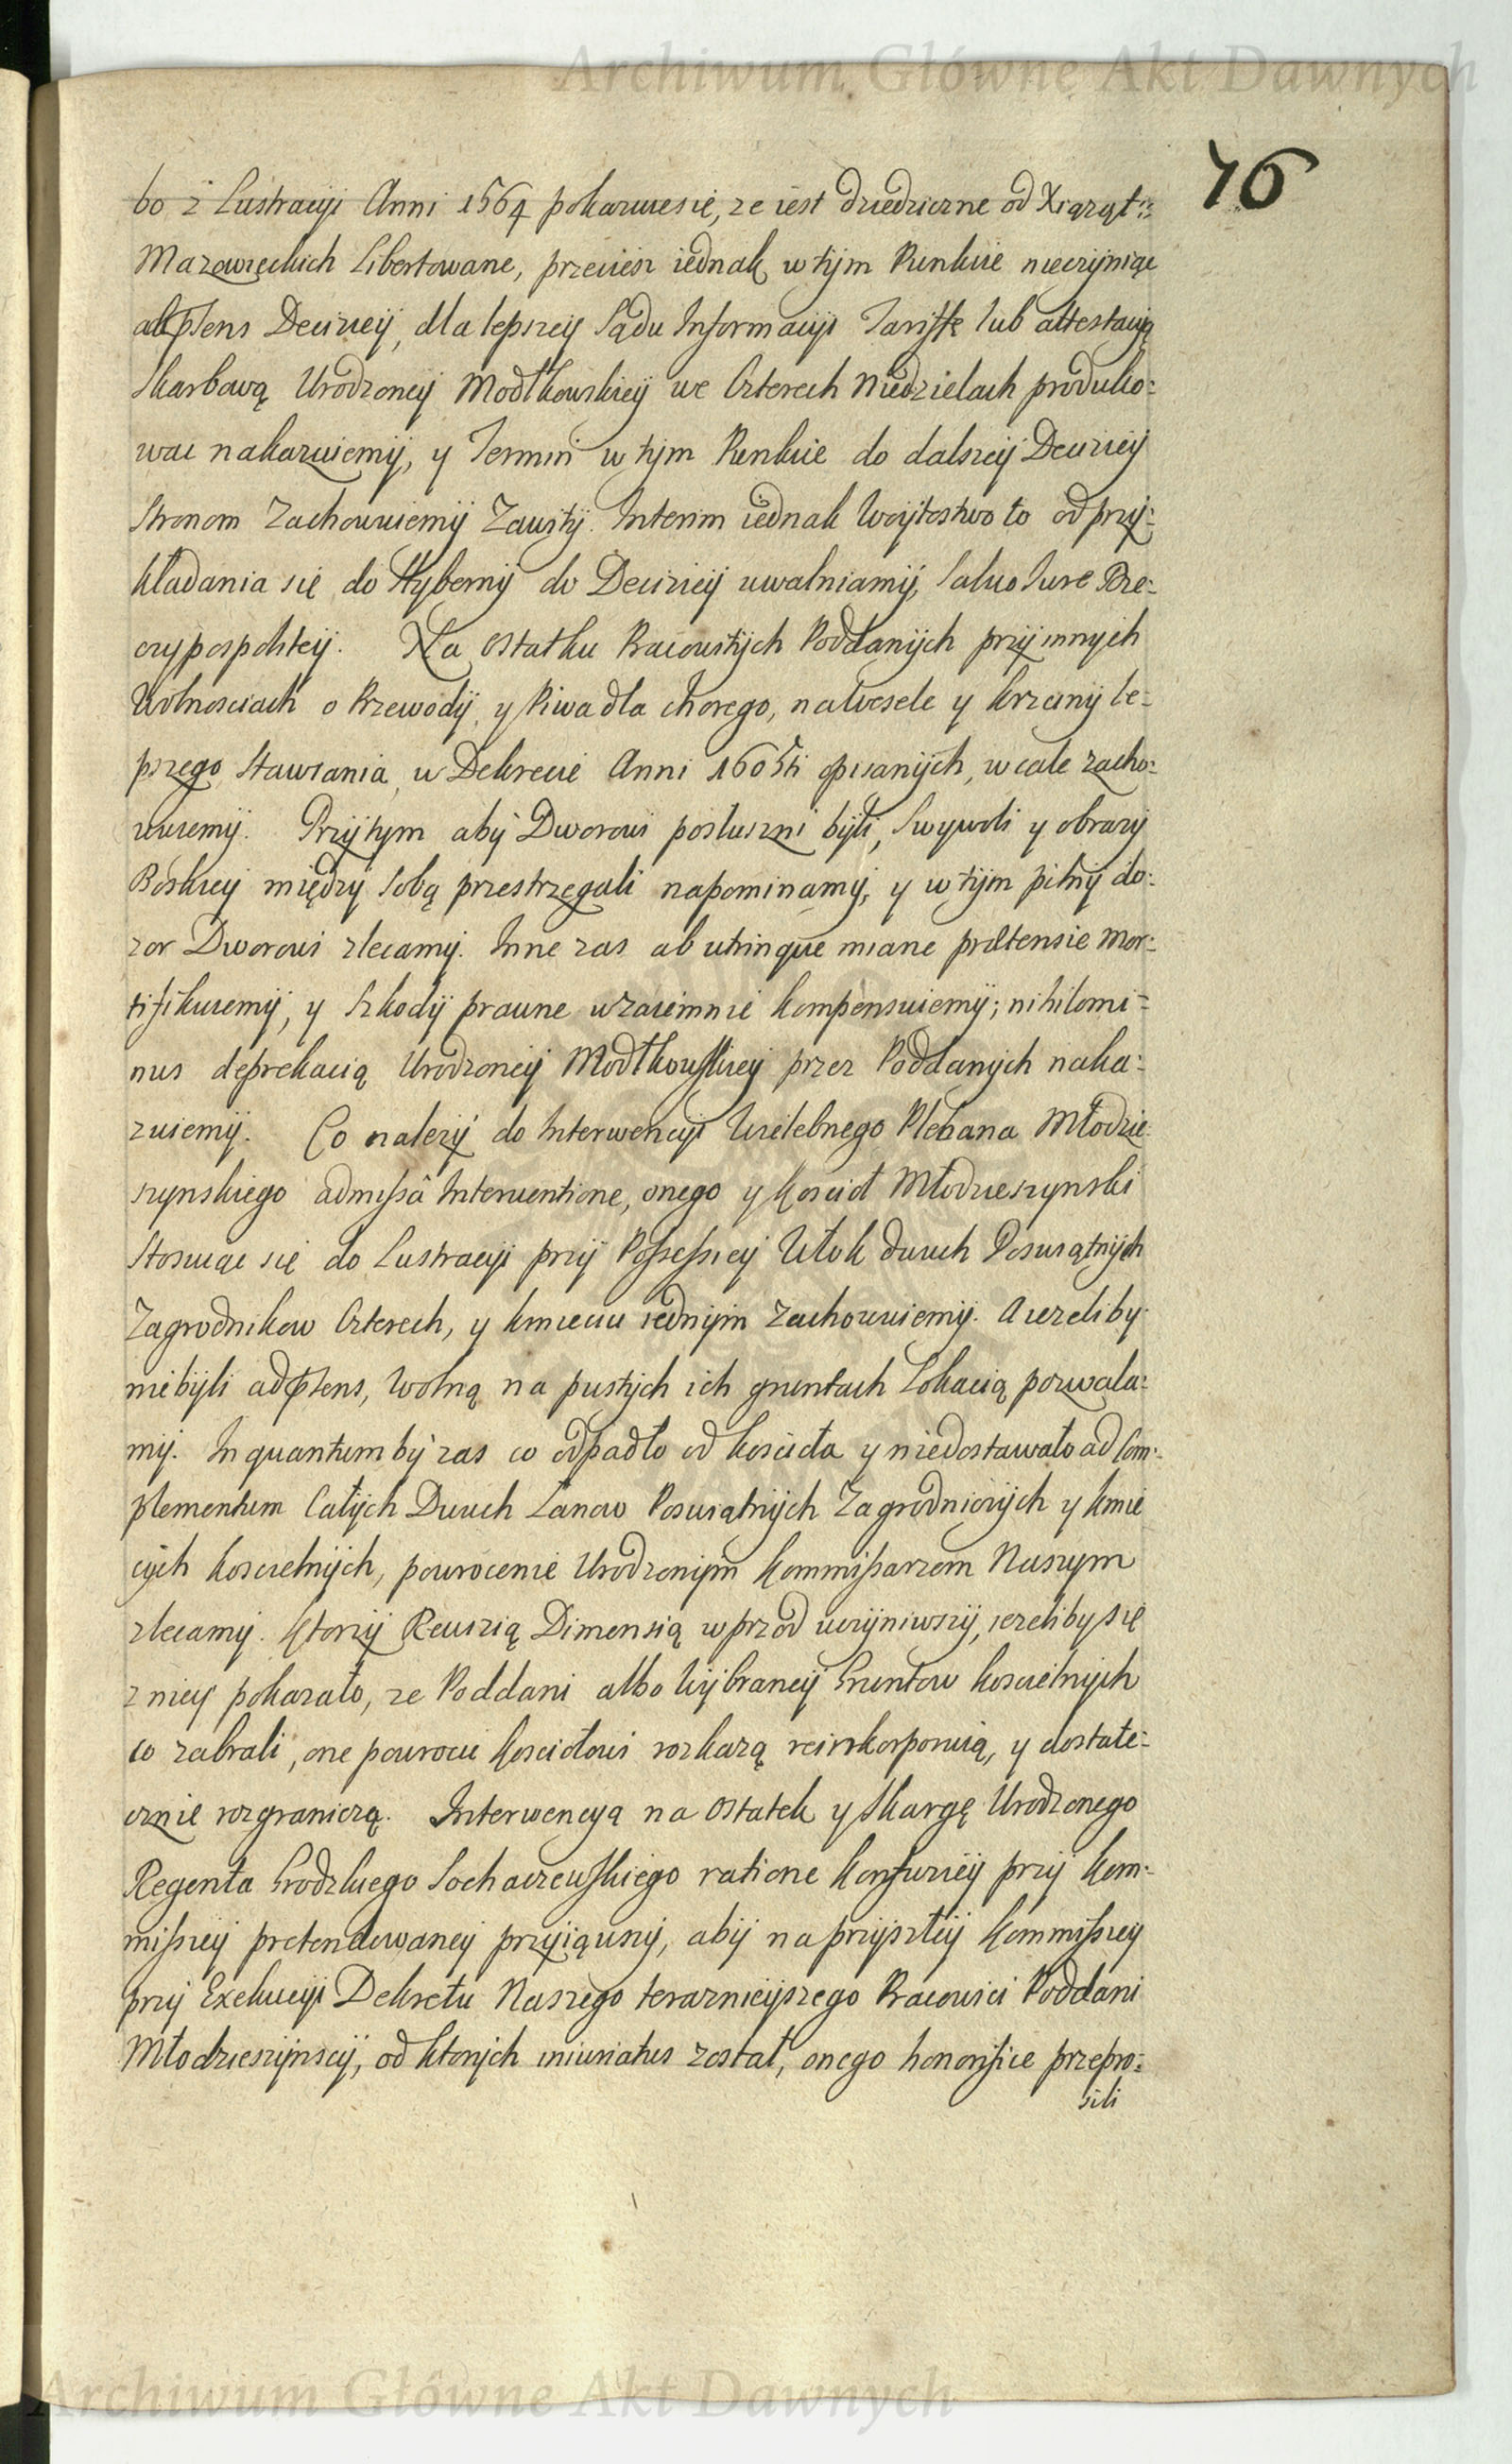 Archiwum Główne Akt Dawnych
76
bo z Lustracyi Anni 1564 pokazuiesię, ze iest dziedziczne od Xiążąt
Mazowięckich Libertowane, przeciesz iednak w tym Punkcie nieczyniąc
Deciziey, dla lepszey Sądu Informacyi Taryffę lub attestacyą
Skarbową Urodzoney Modłkowskiey we Czterech Niedzielach produko:
wac nakazuiemy, y Termin w tym Punkcie do dalszey Deciziey
Stronom Zachowuiemy Zawity. Interim iednak Woytostwo to od przy:
kładania się do Hyberny do Deciziey uwalniamy, Salvo Iure Rze:
czypospolitey. Na Ostatku Pracowitych Poddanych przy innych
Wolnosciach o Przewody, y Piwa dla chorego, na Wesele y krzciny le:
pszego Stawiania, w Dekrecie Anni 1605ti opisanych, wcale zacho:
wuiemy. Przytym aby Dworowi posłuszni byli, Swywoli y obrazy
Boskiey między sobą przestrzegali napominamy, y w tym pilny do:
zor Dworowi zlecamy. Inne zas ab utrinque miane prætensie mor:
tifikuiemy, y Szkody prawne wzaiemnie kompensuiemy; nihilomi:
nus deprekacią Urodzoney Modłkowskiey przez Poddanych naka:
zuiemy. Co nalezy do Interwencyi Wielebnego Plebana Młodzie
szynskiego admissâ Interventione, onego y Koscioł Młodzieszynski
Stosuiąc się do Lustracyi przy Possessiey Włok dwuch Poswiątnych
Zagrodnikow Czterech, y kmieciu iednym Zachowuiemy. A iezeliby
niebyli ad præsens, Wolną na pustych ich gruntach Lokacią pozwala:
my. In quantum by zas co odpadło od koscioła y niedostawało ad Com:
plementum Całych Dwuch Łanow Poswiątnych Zagrodniczych y kmie
cych koscielnych, powrocenie Urodzonym Kommissarzom Naszym
zlecamy. Ktorzy Rewizią Dimensią wprzod uczyniwszy, iezeliby się
z niey pokazało, ze Poddani albo Wybraney Gruntow koscielnych
co zabrali, one powrocic kosciołowi rozkazą reinkorporuią, y dostate:
cznie rozgraniczą. Interwencyą na Ostatek y Skargę Urodzonego
Regenta Grodzkiego Sochaczewskiego ratione Konfuziey przy Kom:
missiey pretendowaney przyiąwszy, aby na przyszłey Kommissiey
przy Exekucyi Dekretu Naszego terazniejszego Pracowici Poddani
Młodzieszynscy, od ktorych iniuriatus został, onego honorifice przepro:
sili
Archiwum Główne Akt Dawnych